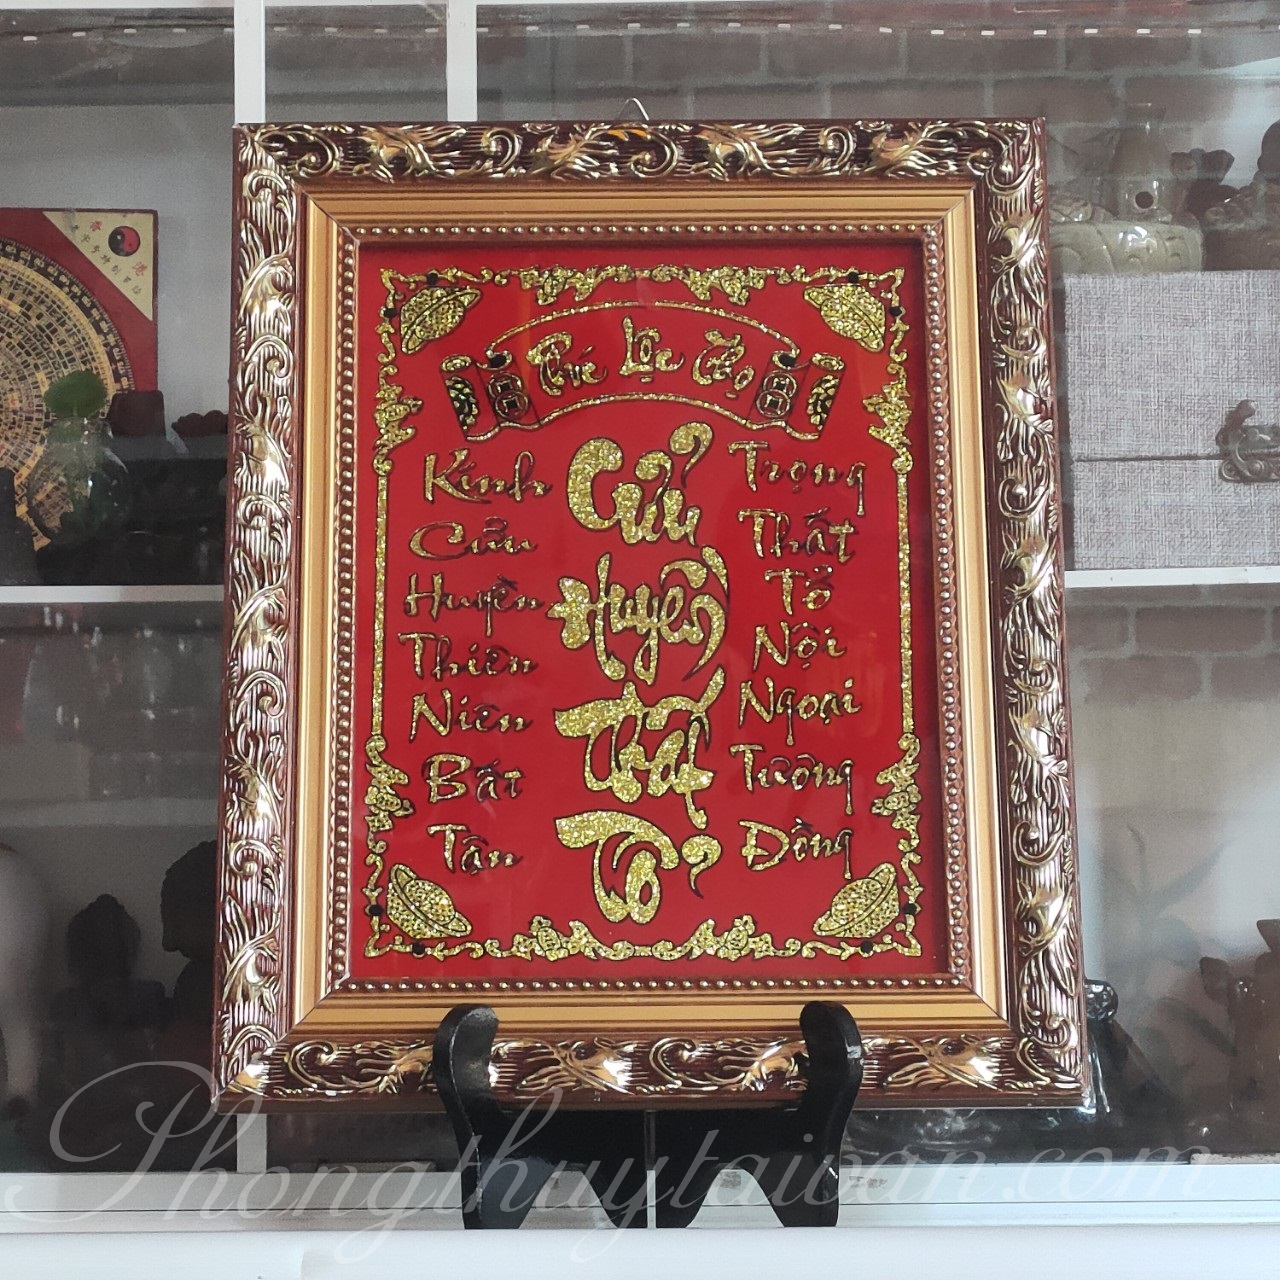 Phúc Lộc Thọ
Kính
Cửu
Huyền
Thiên
Niên
Bất
Tận
Cửu
Huyền
Thất
Tổ
Trọng
Thất
Tổ
Nội
Ngoại
Tường
Đồng
Phongthuytaivan.com